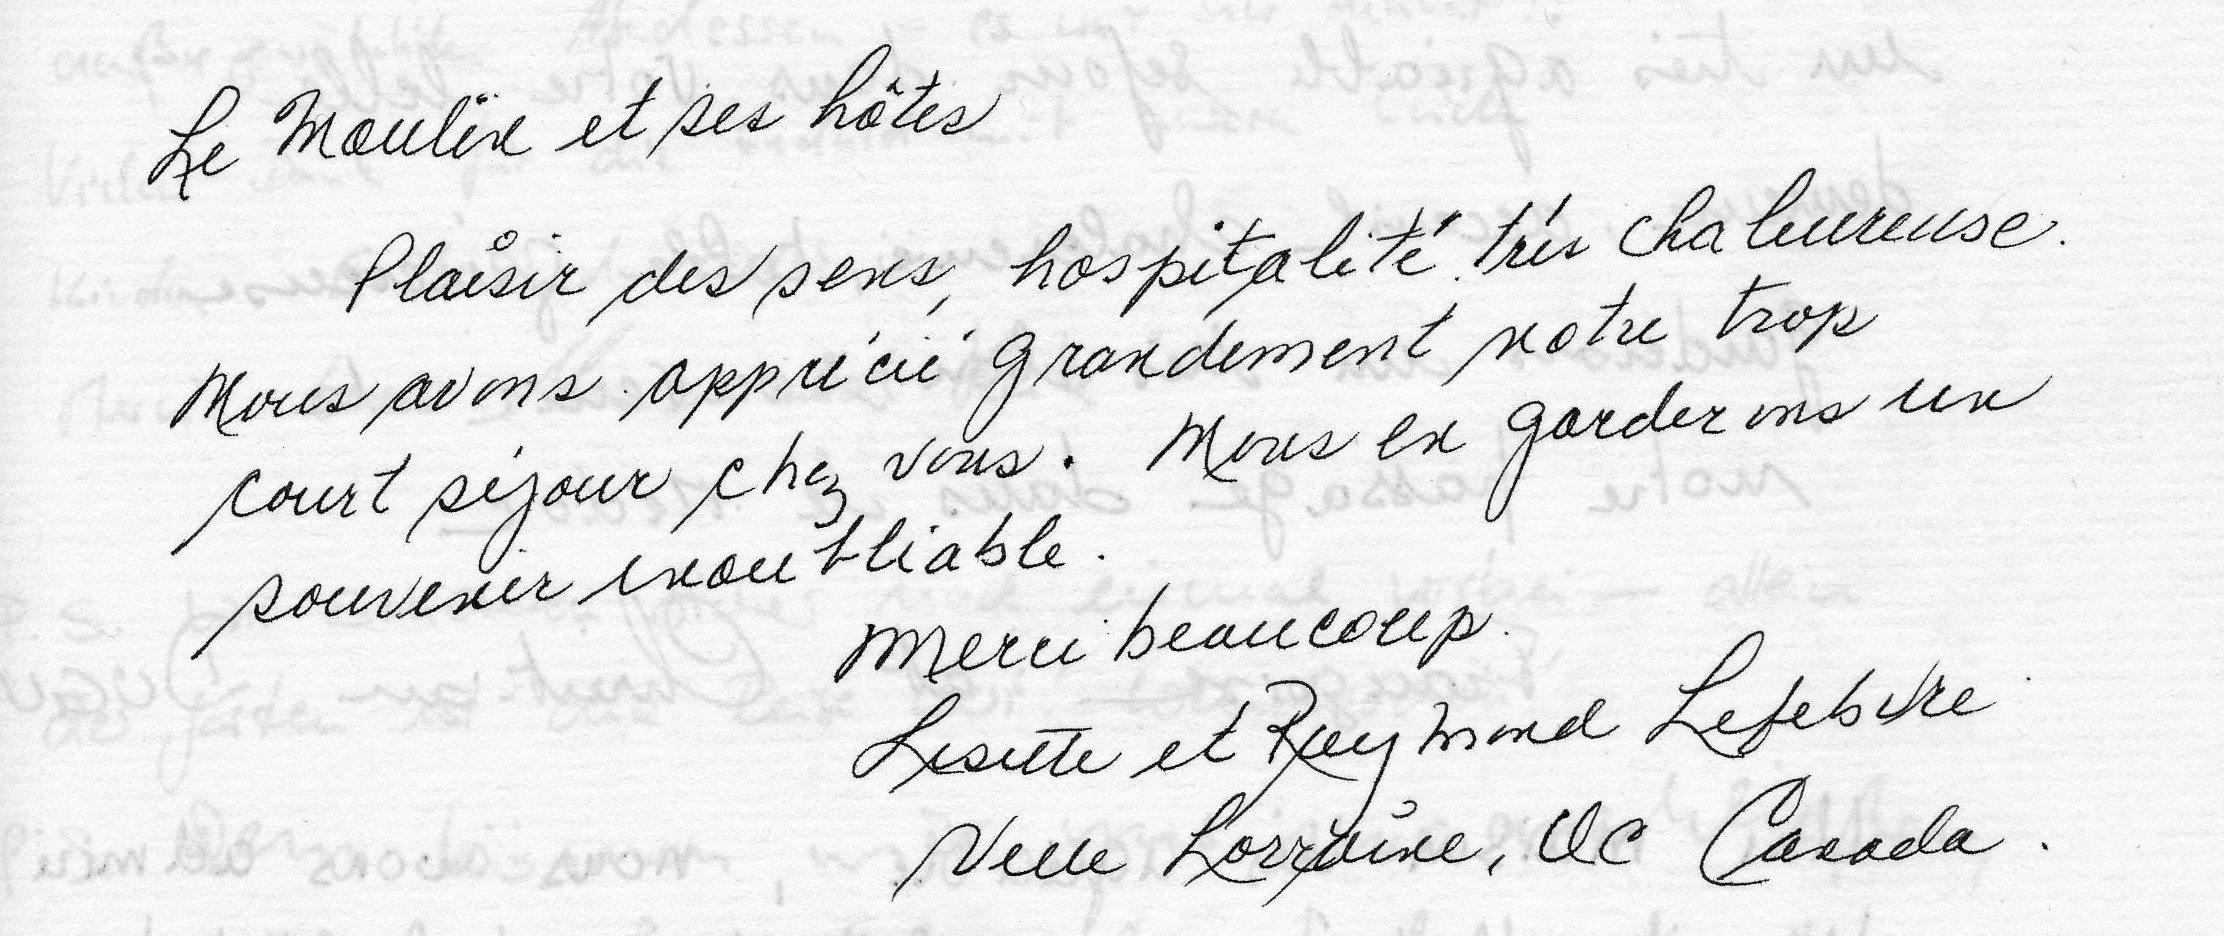 Le Moulin et ses hôtes
Plaisir des sens, hospitalité très chaleureuse.
Nous avons apprécié grandement notre trop
court séjour chez vous. Nous en garderons un
souvenir inoubliable.
Merci beaucoup.
Lisette et Raymond Lefebvre
Ville Lorraine, QC Canada.